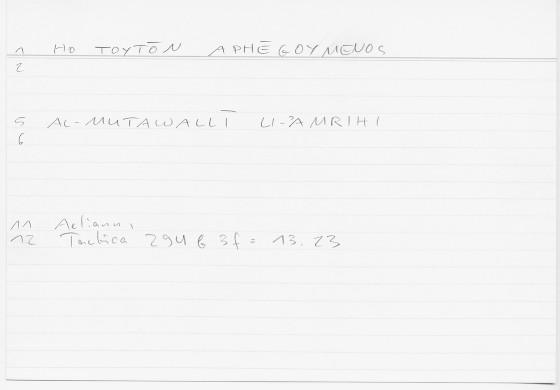 1 HO TOYTŌN APHĒGOYMENOS
2
5 AL-MUTAWALLĪ LI-ʾAMRIHI
6
11 Aelianus,
12 Tactica 294 b 3f = 13.23